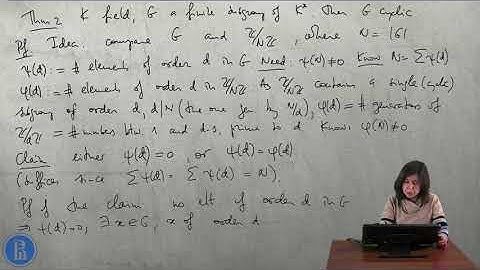 Thm 2 K field, G a finite subgroup of K^x then G cyclic
Pf Idea: compare G and Z/NZ, where N = |G|
ψ(d) := # elements of order d in G Need: ψ(N)≠0 Know N = Σψ(d)
φ(d) := # elements of order d in Z/NZ As Z/NZ contains a single (cyclic)
subgroup of order d, d|N (the one gen by N/d), φ(d) = # generators of
Z/dZ = # numbers btw 1 and d-1, prime to d Know: φ(N)≠0
Claim either ψ(d)=0, or ψ(d)=φ(d)
(suffices since Σφ(d) = Σψ(d) = N).
Pf of the claim no elt of order d in G
⇒ ψ(d)=0, ∃ x∈G, x of order d